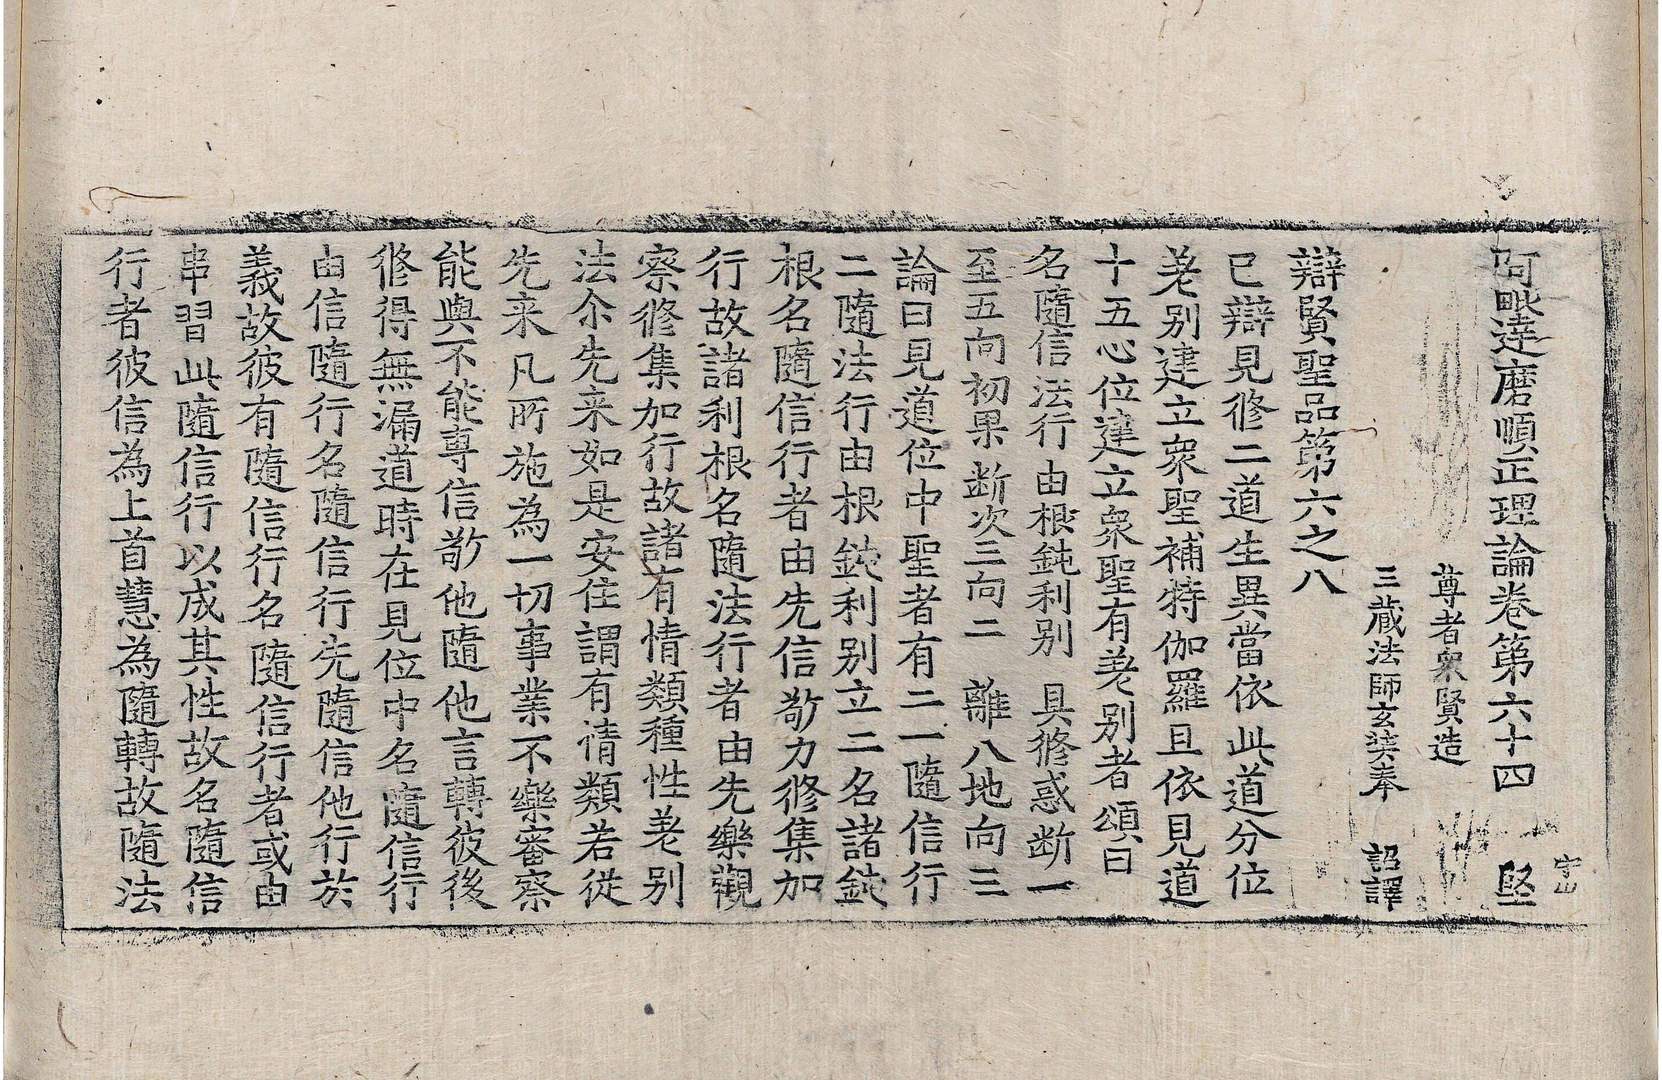 阿毗達磨順正理論卷第六十四 堅
尊者衆賢造
三藏法師玄奘奉 詔譯
辯賢聖品第六之八
已辯見修二道生異當依此道分位
差別建立衆聖補特伽羅且依見道
十五心位建立衆聖有差別者頌曰
名隨信法行由根鈍利別 具修惑断一
至五向初果断次三向二 離八地向三
論曰見道位中聖者有二一隨信行
二隨法行由根鈍利別立二名諸鈍
根名隨信行者由先信敬力修集加
行故諸利根名隨法行者由先樂觀
察修集加行故諸有情類種性差別
法尒先来如是安住謂有情類若從
先来凡所施為一切事業不樂審察
能與不能專信敬他隨他言轉彼後
修得無漏道時在見位中名隨信行
由信隨行名隨信行先隨信他行於
義故彼有隨信行名隨信行者或由
串習此隨信行以成其性故名隨信
行者彼信為上首慧為隨轉故隨法